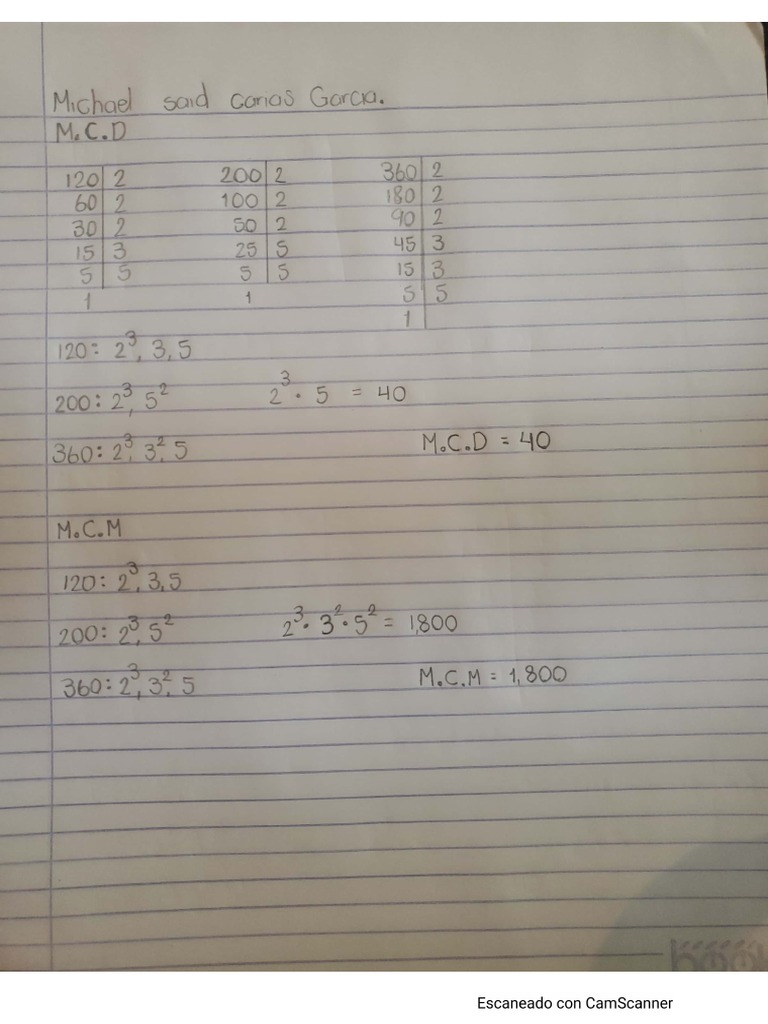 Michael said carias Garcia.
M.C.D
120 | 2 200 | 2 360 | 2
60 | 2 100 | 2 180 | 2
30 | 2 50 | 2 90 | 2
15 | 3 25 | 5 45 | 3
5 | 5 5 | 5 15 | 3
1 1 5 | 5
1
120: 2³, 3, 5
200: 2³, 5² 2³ · 5 = 40
360: 2³, 3², 5 M.C.D = 40
M.C.M
120: 2³, 3, 5
200: 2³, 5² 2³ · 3² · 5² = 1,800
360: 2³, 3², 5 M.C.M = 1,800
Escaneado con CamScanner